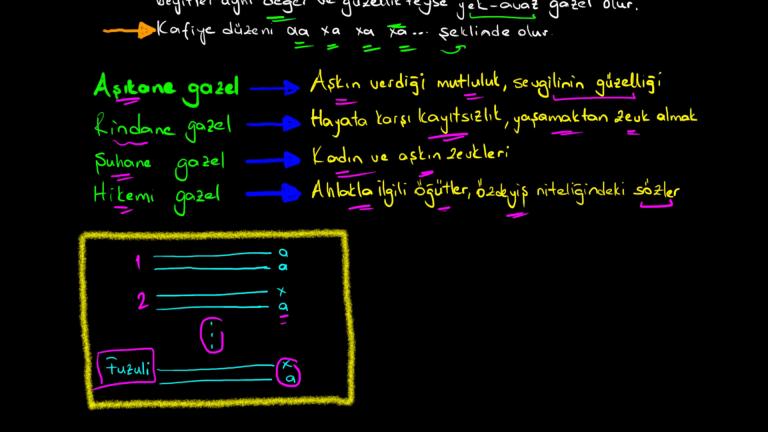 beyitler aynı değer ve güzellikteyse yek-avaz gazel olur.
Kafiye düzeni aa xa xa xa... şeklinde olur
Aşıkane gazel Aşkın verdiği mutluluk, sevgilinin güzelliği
Rindane gazel Hayata karşı kayıtsızlık, yaşamaktan zevk almak
Şuhane gazel Kadın ve aşkın zevkleri
Hikemi gazel Ahlakla ilgili öğütler, özdeyiş niteliğindeki sözler
1 a
a
2 x
a
Fuzuli x
a